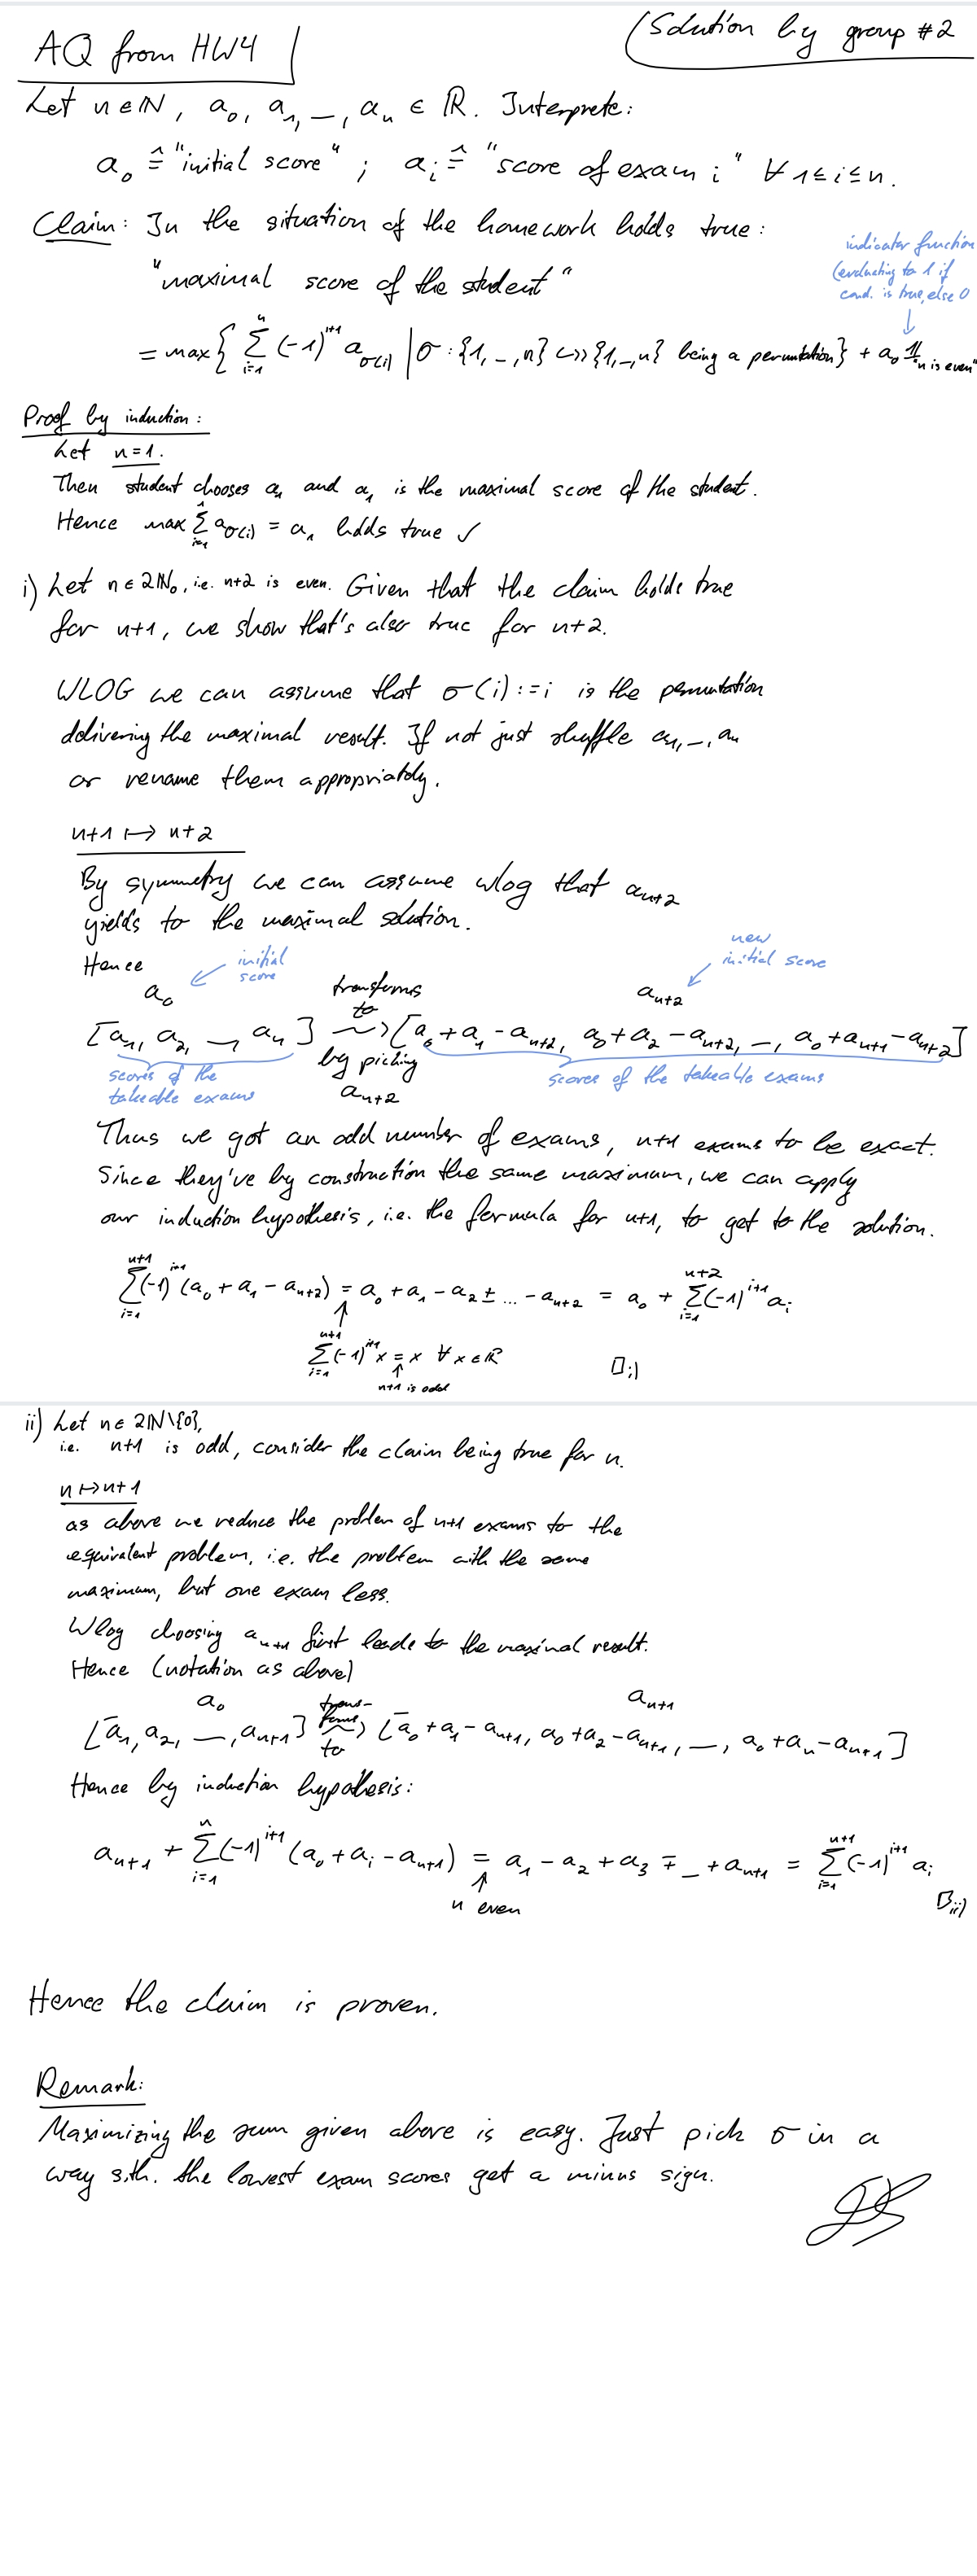 AQ from HW4
(Solution by group #2
Let n∈ℕ, a₀, a₁, —, aₙ ∈ ℝ. Interprete:
a₀ ≙ "initial score" ; aᵢ ≙ "score of exam i" ∀ 1≤i≤n.
Claim: In the situation of the homework holds true:
"maximal score of the student"
indicator function
(evaluating to 1 if
cond. is true, else 0
= max{ ∑_{i=1}^{n} (-1)^{i+1} a_{σ(i)} | σ: {1,—,n} ↪↠ {1,—,n} being a permutation} + a₀ 𝟙_{"n is even"}
Proof by induction:
Let n=1.
Then student chooses a₁ and a₁ is the maximal score of the student.
Hence max ∑_{i=1}^{1} a_{σ(i)} = a₁ holds true ✓
i) Let n∈2ℕ₀, i.e. n+2 is even. Given that the claim holds true
for n+1, we show that's also true for n+2.
WLOG we can assume that σ(i):=i is the permutation
delivering the maximal result. If not just shuffle a₁, —, aₙ
or rename them appropriately.
n+1 ↦ n+2
By symmetry we can assume wlog that a_{n+2}
yields to the maximal solution.
Hence
initial
score
new
initial score
a₀
transforms
to
a_{n+2}
[a₁, a₂, —, aₙ] ⇝ [a₀+a₁-a_{n+2}, a₀+a₂-a_{n+2}, —, a₀+a_{n+1}-a_{n+2}]
by picking
a_{n+2}
scores of the
takeable exams
scores of the takeable exams
Thus we got an odd number of exams, n+1 exams to be exact.
Since they've by construction the same maximum, we can apply
our induction hypothesis, i.e. the formula for n+1, to get to the solution.
∑_{i=1}^{n+1} (-1)^{i+1} (a₀ + a₁ - a_{n+2}) = a₀ + a₁ - a₂ ± ... - a_{n+2} = a₀ + ∑_{i=1}^{n+2} (-1)^{i+1} aᵢ
↑
∑_{i=1}^{n+1} (-1)^{i+1} x = x ∀ x∈ℝ
↑
n+1 is odd
□ i)
ii) Let n∈2ℕ\{0},
i.e. n+1 is odd, consider the claim being true for n.
n ↦ n+1
as above we reduce the problem of n+1 exams to the
equivalent problem, i.e. the problem with the same
maximum, but one exam less.
Wlog choosing a_{n+1} first leads to the maximal result.
Hence (notation as above)
a₀
trans-
forms
a_{n+1}
[a₁, a₂, —, a_{n+1}] ⇝ [a₀+a₁-a_{n+1}, a₀+a₂-a_{n+1}, —, a₀+aₙ-a_{n+1}]
to
Hence by induction hypothesis:
a_{n+1} + ∑_{i=1}^{n} (-1)^{i+1} (a₀+aᵢ-a_{n+1}) = a₁ - a₂ + a₃ ∓ — + a_{n+1} = ∑_{i=1}^{n+1} (-1)^{i+1} aᵢ
↑
n even
□ ii)
Hence the claim is proven.
Remark:
Maximizing the sum given above is easy. Just pick σ in a
way s.th. the lowest exam scores get a minus sign.